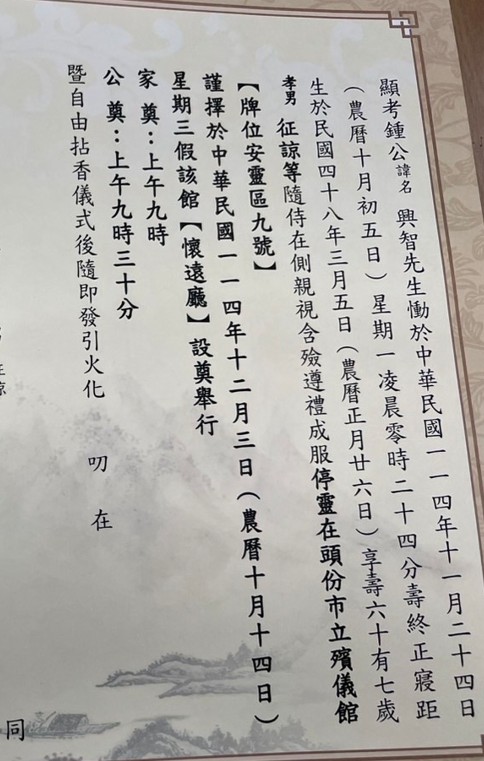 顯考鍾公諱名 興智先生慟於中華民國一一四年十一月二十四日
（農曆十月初五日）星期一凌晨零時二十四分壽終正寢距
生於民國四十八年三月五日（農曆正月廿六日）享壽六十有七歲
孝男 征諒等隨侍在側親視含殮遵禮成服停靈在頭份市立殯儀館
【牌位安靈區九號】
謹擇於中華民國一一四年十二月三日（農曆十月十四日）
星期三假該館【懷遠廳】設奠舉行
家奠：上午九時
公奠：上午九時三十分
暨自由拈香儀式後隨即發引火化 叨在
同